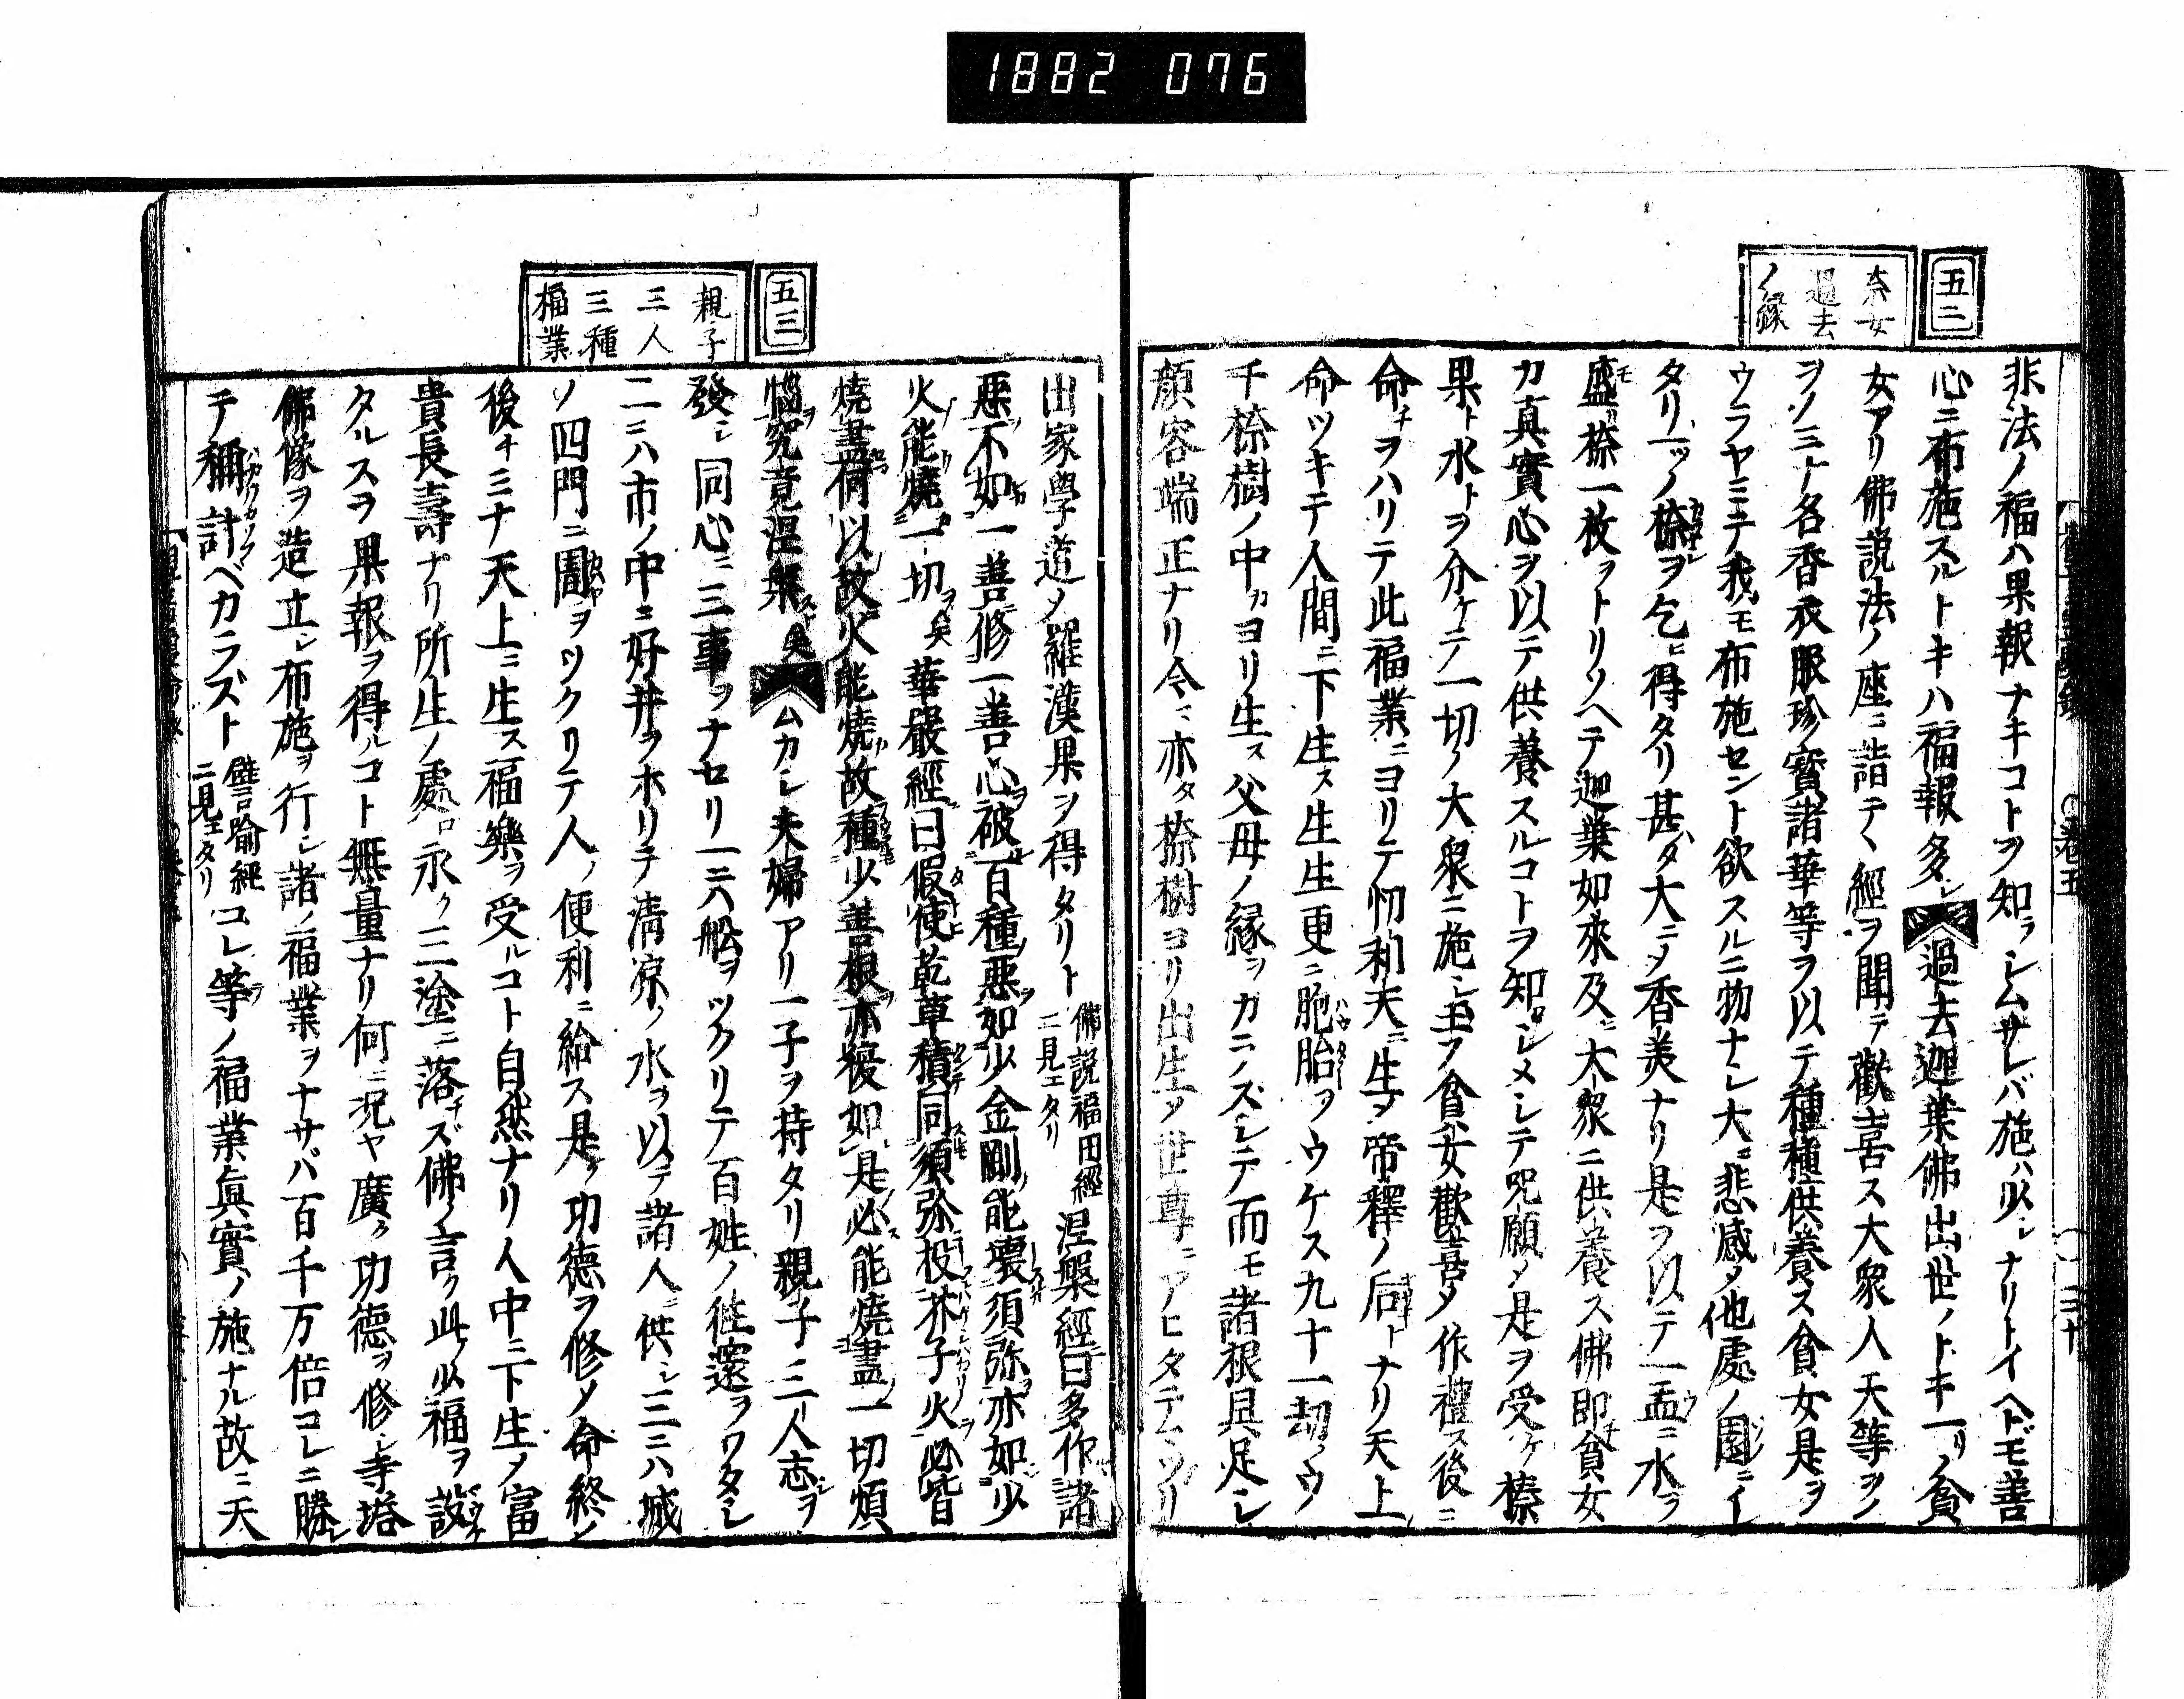 1882 076
五二
柰女
過去
ノ縁
非法ノ福ハ果報ナキコトヲ知ラシムサレバ施ハ少シナリトイヘドモ善
心ニ布施スルトキハ福報多シ過去迦葉佛出世ノトキ一リノ貧
女アリ佛説法ノ座ニ詣テ經ヲ聞テ歡喜ス大衆人天等ヲノ
ヲノミナ各香衣服珍寳諸華等ヲ以テ種種供養ス貧女是ヲ
ウラヤミテ我モ布施セント欲スルニ物ナシ大ニ悲感シテ他處ノ園ニイ
タリ一ツノ㮈ヲ乞ヒ得タリ甚ダ大ニシテ香美ナリ是ヲ以テ一盂ニ水ヲ
盛㮈一枚ヲトリソヘテ迦葉如來及ニ大衆ニ供養ス佛即チ貧女
カ真實心ヲ以テ供養スルコトヲ知ロシメシテ呪願シテ是ヲ受ケ㮈
果ト水トヲ分ケテ一切ノ大衆ニ施シ玉フ貧女歡喜シテ作禮ス後ニ
命チヲハリテ此福業ニヨリテ忉利天ニ生シテ帝釋ノ后トナリ天上
命ツキテ人間ニ下生ス生生更ニ胞胎ヲウケス九十一劫ノウノ
千㮈樹ノ中カヨリ生ス父母ノ縁ヲカニノズシテ而モ諸根具足シ
顔容端正ナリ今ニ亦タ㮈樹ヨリ出生シテ世尊ニアヒタテマツリ
五三
親子
三人
三種
福業
出家學道シテ羅漢果ヲ得タリト 佛説福田經ニ見エタリ 涅槃經曰多作諸
惡不如一善修一善心破百種惡如少金剛能壞須弥亦如少
火能燒一切矣華嚴經曰假使乾草積同須弥投芥子火必皆
燒盡何以故火能燒故種少善根亦複如是必能燒盡一切煩
惱究竟涅槃矣ムカシ夫婦アリ一子ヲ持タリ親子三人志ヲ
發シ同心ニ三事ヲナセリ一ニハ船ヲツクリテ百姓ノ往還ヲワタシ
二ニハ市ノ中ニ好井ヲホリテ清凉ノ水ヲ以テ諸人ニ供シ三ニハ城
ノ四門ニ圊ヲツクリテ人ノ便利ニ給ス是ノ功德ヲ修シテ命終シテ
後チミナ天上ニ生ス福樂ヲ受ルコト自然ナリ人中ニ下生シテ富
貴長壽ナリ所生ノ處ロ永ク三塗ニ落チズ佛ノ言ク此ノ少福ヲ設
タルスヲ果報ヲ得ルコト無量ナリ何ニ況ヤ廣ク功德ヲ修シ寺塔
佛像ヲ造立シ布施ヲ行シ諸ノ福業ヲナサバ百千万倍コレニ勝レ
テ稱計ベカラズト 譬喻經ニ見エタリ コレ等ノ福業眞實ノ施ナル故ニ天